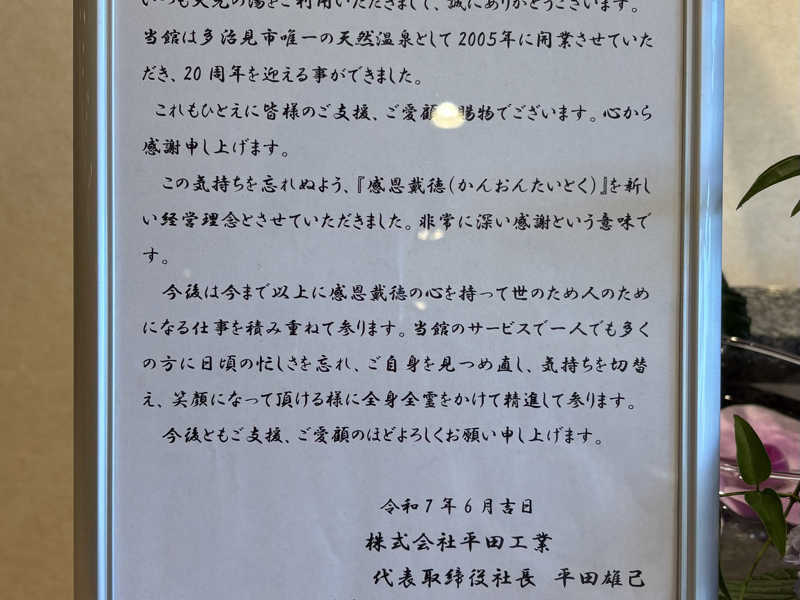 いつも天光の湯をご利用いただきまして、誠にありがとうございます。
当館は多治見市唯一の天然温泉として2005年に開業させていた
だき、20周年を迎える事ができました。
これもひとえに皆様のご支援、ご愛顧 賜物でございます。心から
感謝申し上げます。
この気持ちを忘れぬよう、『感恩戴徳(かんおんたいとく)』を新し
い経営理念とさせていただきました。非常に深い感謝という意味で
す。
今後は今まで以上に感恩戴徳の心を持って世のため人のため
になる仕事を積み重ねて参ります。当館のサービスで一人でも多く
の方に日頃の忙しさを忘れ、ご自身を見つめ直し、気持ちを切替
え、笑顔になって頂ける様に全身全霊をかけて精進して参ります。
今後ともご支援、ご愛顧のほどよろしくお願い申し上げます。
令和7年6月吉日
株式会社平田工業
代表取締役社長 平田雄己